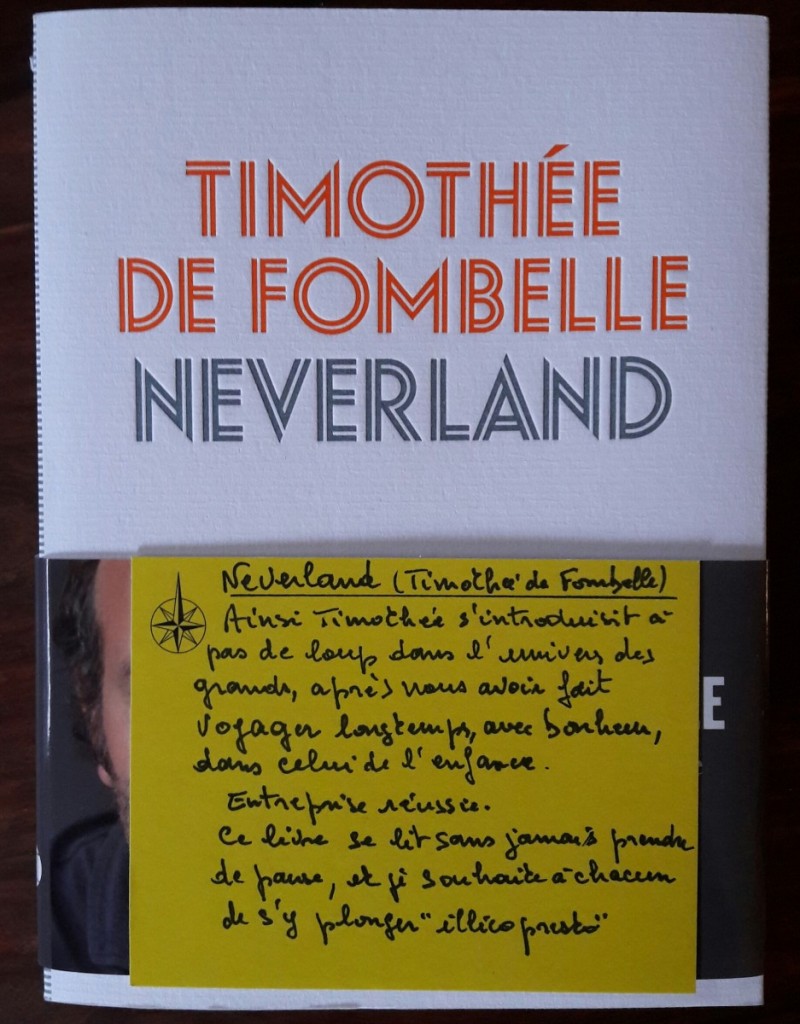 TIMOTHÉE
DE FOMBELLE
NEVERLAND
Neverland (Timothée de Fombelle)
Ainsi Timothée s'introduisit à
pas de loup dans l'univers des
grands, après nous avoir fait
voyager longtemps, avec bonheur,
dans celui de l'enfance.
Entreprise réussie.
Ce livre se lit sans jamais prendre
de pause, et je souhaite à chacun
de s'y plonger "illico presto"
E